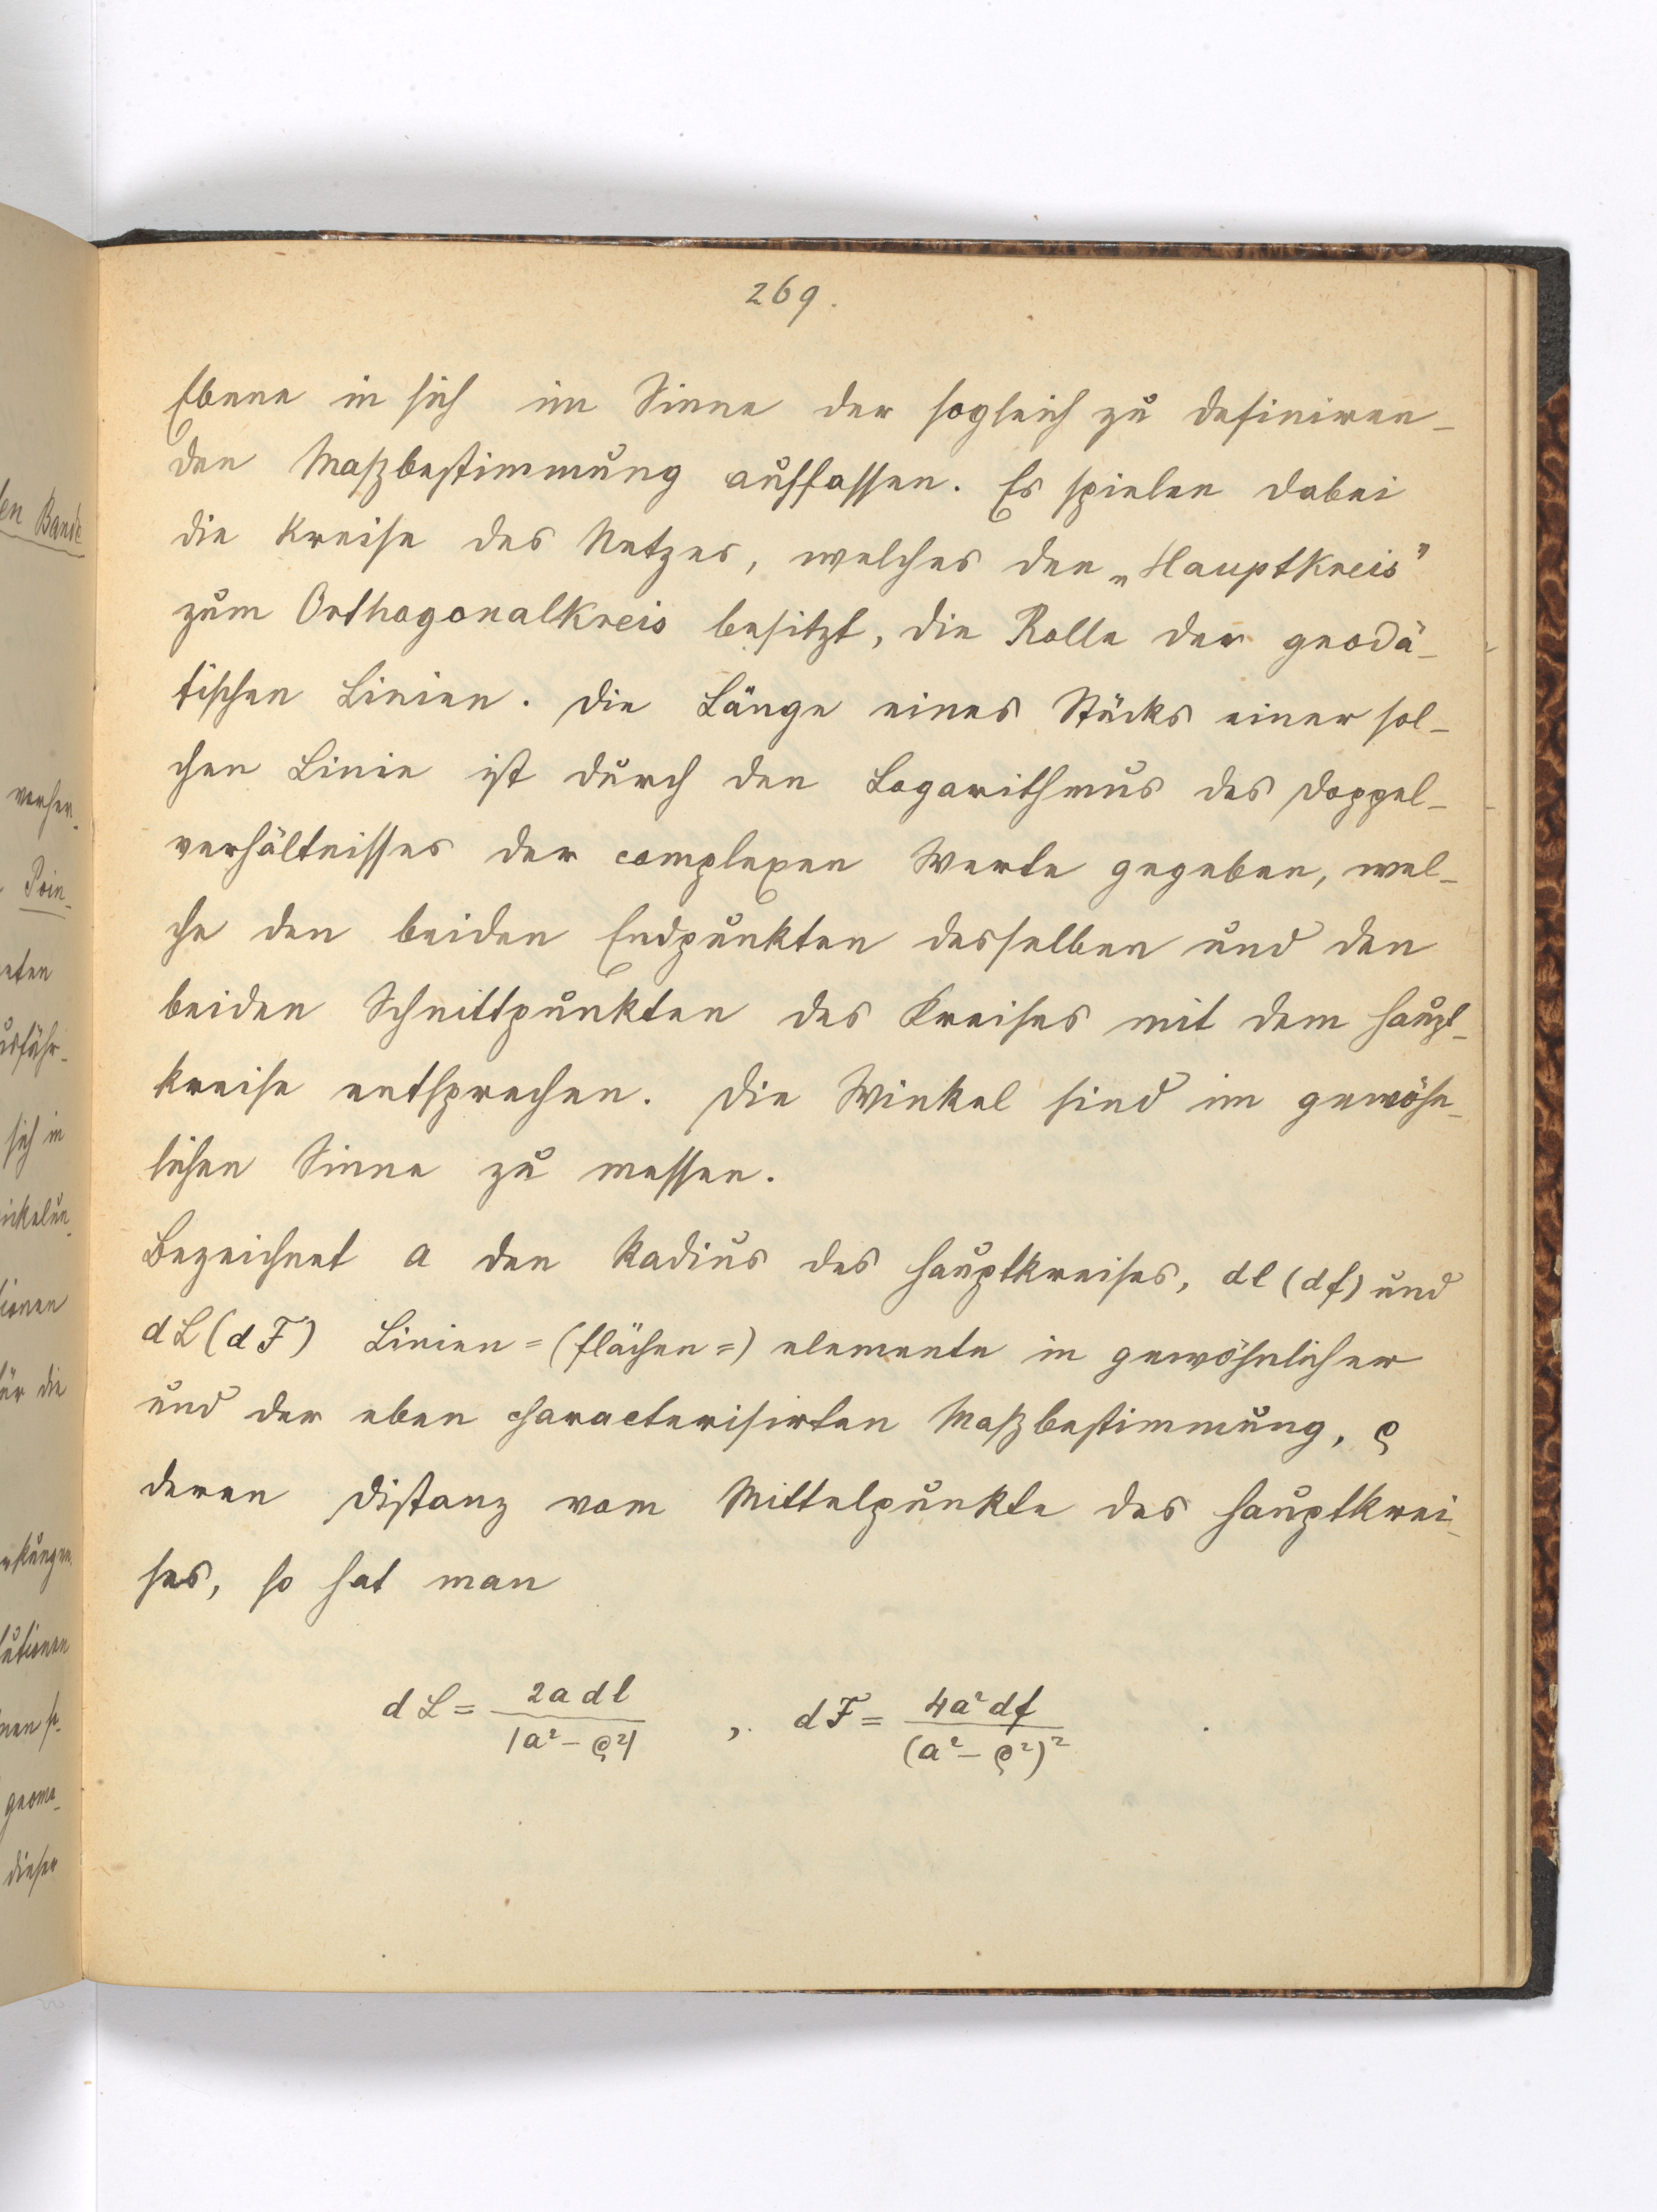 269.
Ebene in sich im Sinne der sogleich zu definiren-
den Maßbestimmung auffassen. Es spielen dabei
die Kreise des Netzes, welches den „Hauptkreis"
zum Orthogonalkreis besitzt, die Rolle der geodä-
tischen Linien. Die Länge eines Stücks einer sol-
chen Linie ist durch den Logarithmus des Doppel-
verhältnisses der complexen Werte gegeben, wel-
che den beiden Endpunkten desselben und den
beiden Schnittpunkten des Kreises mit dem Haupt-
kreise entsprechen. Die Winkel sind im gewöhn-
lichen Sinne zu messen.
Bezeichnet a den Radius des Hauptkreises, dl (df) und
dL (dF) Linien=(flächen=) elemente in gewöhnlicher
und der eben characterisirten Maßbestimmung, ϱ
deren Distanz vom Mittelpunkte des Hauptkrei-
ses, so hat man
dL = 2a dl / |a² - ϱ²| , dF = 4a² df / (a² - ϱ²)² .
en Bande
Poin-
sich in
für die
geome-
dieser